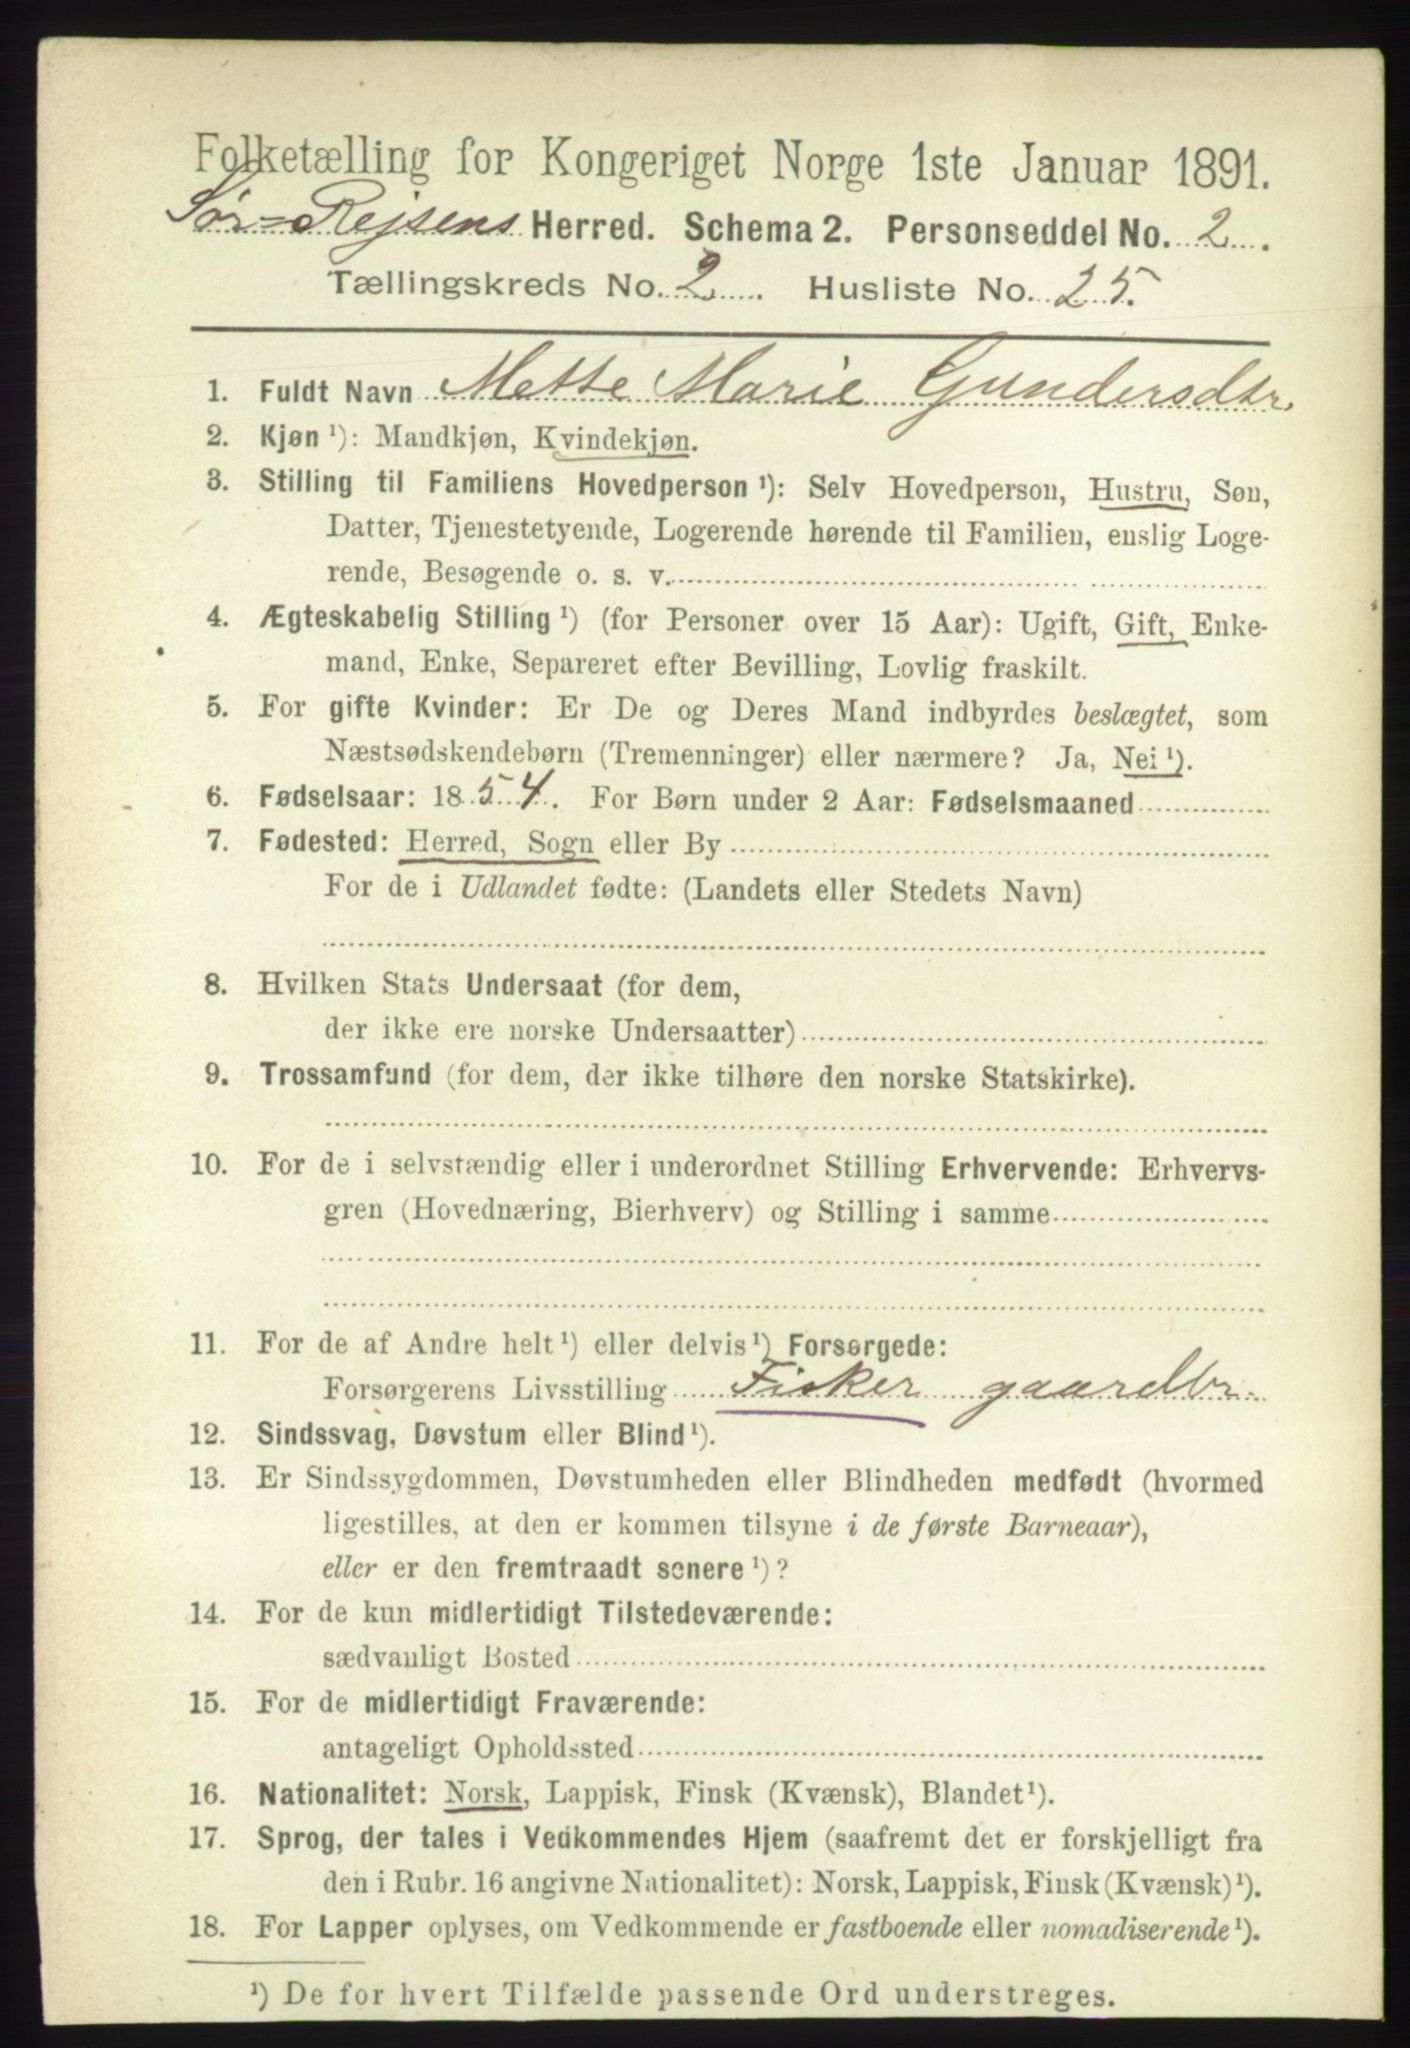 Folketælling for Kongeriget Norge 1ste Januar 1891.
Sør-Rejsens Herred. Schema 2. Personseddel No. 2.
Tællingskreds No. 2. Husliste No. 25.
1. Fuldt Navn Mette Marie Gundersdtr.
2. Kjøn ¹): Mandkjøn, Kvindekjøn.
3. Stilling til Familiens Hovedperson ¹): Selv Hovedperson, Hustru, Søn,
Datter, Tjenestetyende, Logerende hørende til Familien, enslig Loge-
rende, Besøgende o. s. v.
4. Ægteskabelig Stilling ¹) (for Personer over 15 Aar): Ugift, Gift, Enke-
mand, Enke, Separeret efter Bevilling, Lovlig fraskilt.
5. For gifte Kvinder: Er De og Deres Mand indbyrdes beslægtet, som
Næstsødskendebørn (Tremenninger) eller nærmere? Ja, Nei ¹).
6. Fødselsaar: 1854. For Børn under 2 Aar: Fødselsmaaned
7. Fødested: Herred, Sogn eller By
For de i Udlandet fødte: (Landets eller Stedets Navn)
8. Hvilken Stats Undersaat (for dem,
der ikke ere norske Undersaatter)
9. Trossamfund (for dem, der ikke tilhøre den norske Statskirke).
10. For de i selvstændig eller i underordnet Stilling Erhvervende: Erhvervs-
gren (Hovednæring, Bierhverv) og Stilling i samme
11. For de af Andre helt ¹) eller delvis ¹) Forsørgede:
Forsørgerens Livsstilling Fisker gaardbr.
12. Sindssvag, Døvstum eller Blind ¹).
13. Er Sindssygdommen, Døvstumheden eller Blindheden medfødt (hvormed
ligestilles, at den er kommen tilsyne i de første Barneaar),
eller er den fremtraadt senere ¹)?
14. For de kun midlertidigt Tilstedeværende:
sædvanligt Bosted
15. For de midlertidigt Fraværende:
antageligt Opholdssted
16. Nationalitet: Norsk, Lappisk, Finsk (Kvænsk), Blandet ¹).
17. Sprog, der tales i Vedkommendes Hjem (saafremt det er forskjelligt fra
den i Rubr. 16 angivne Nationalitet): Norsk, Lappisk, Finsk (Kvænsk) ¹).
18. For Lapper oplyses, om Vedkommende er fastboende eller nomadiserende ¹).
¹) De for hvert Tilfælde passende Ord understreges.